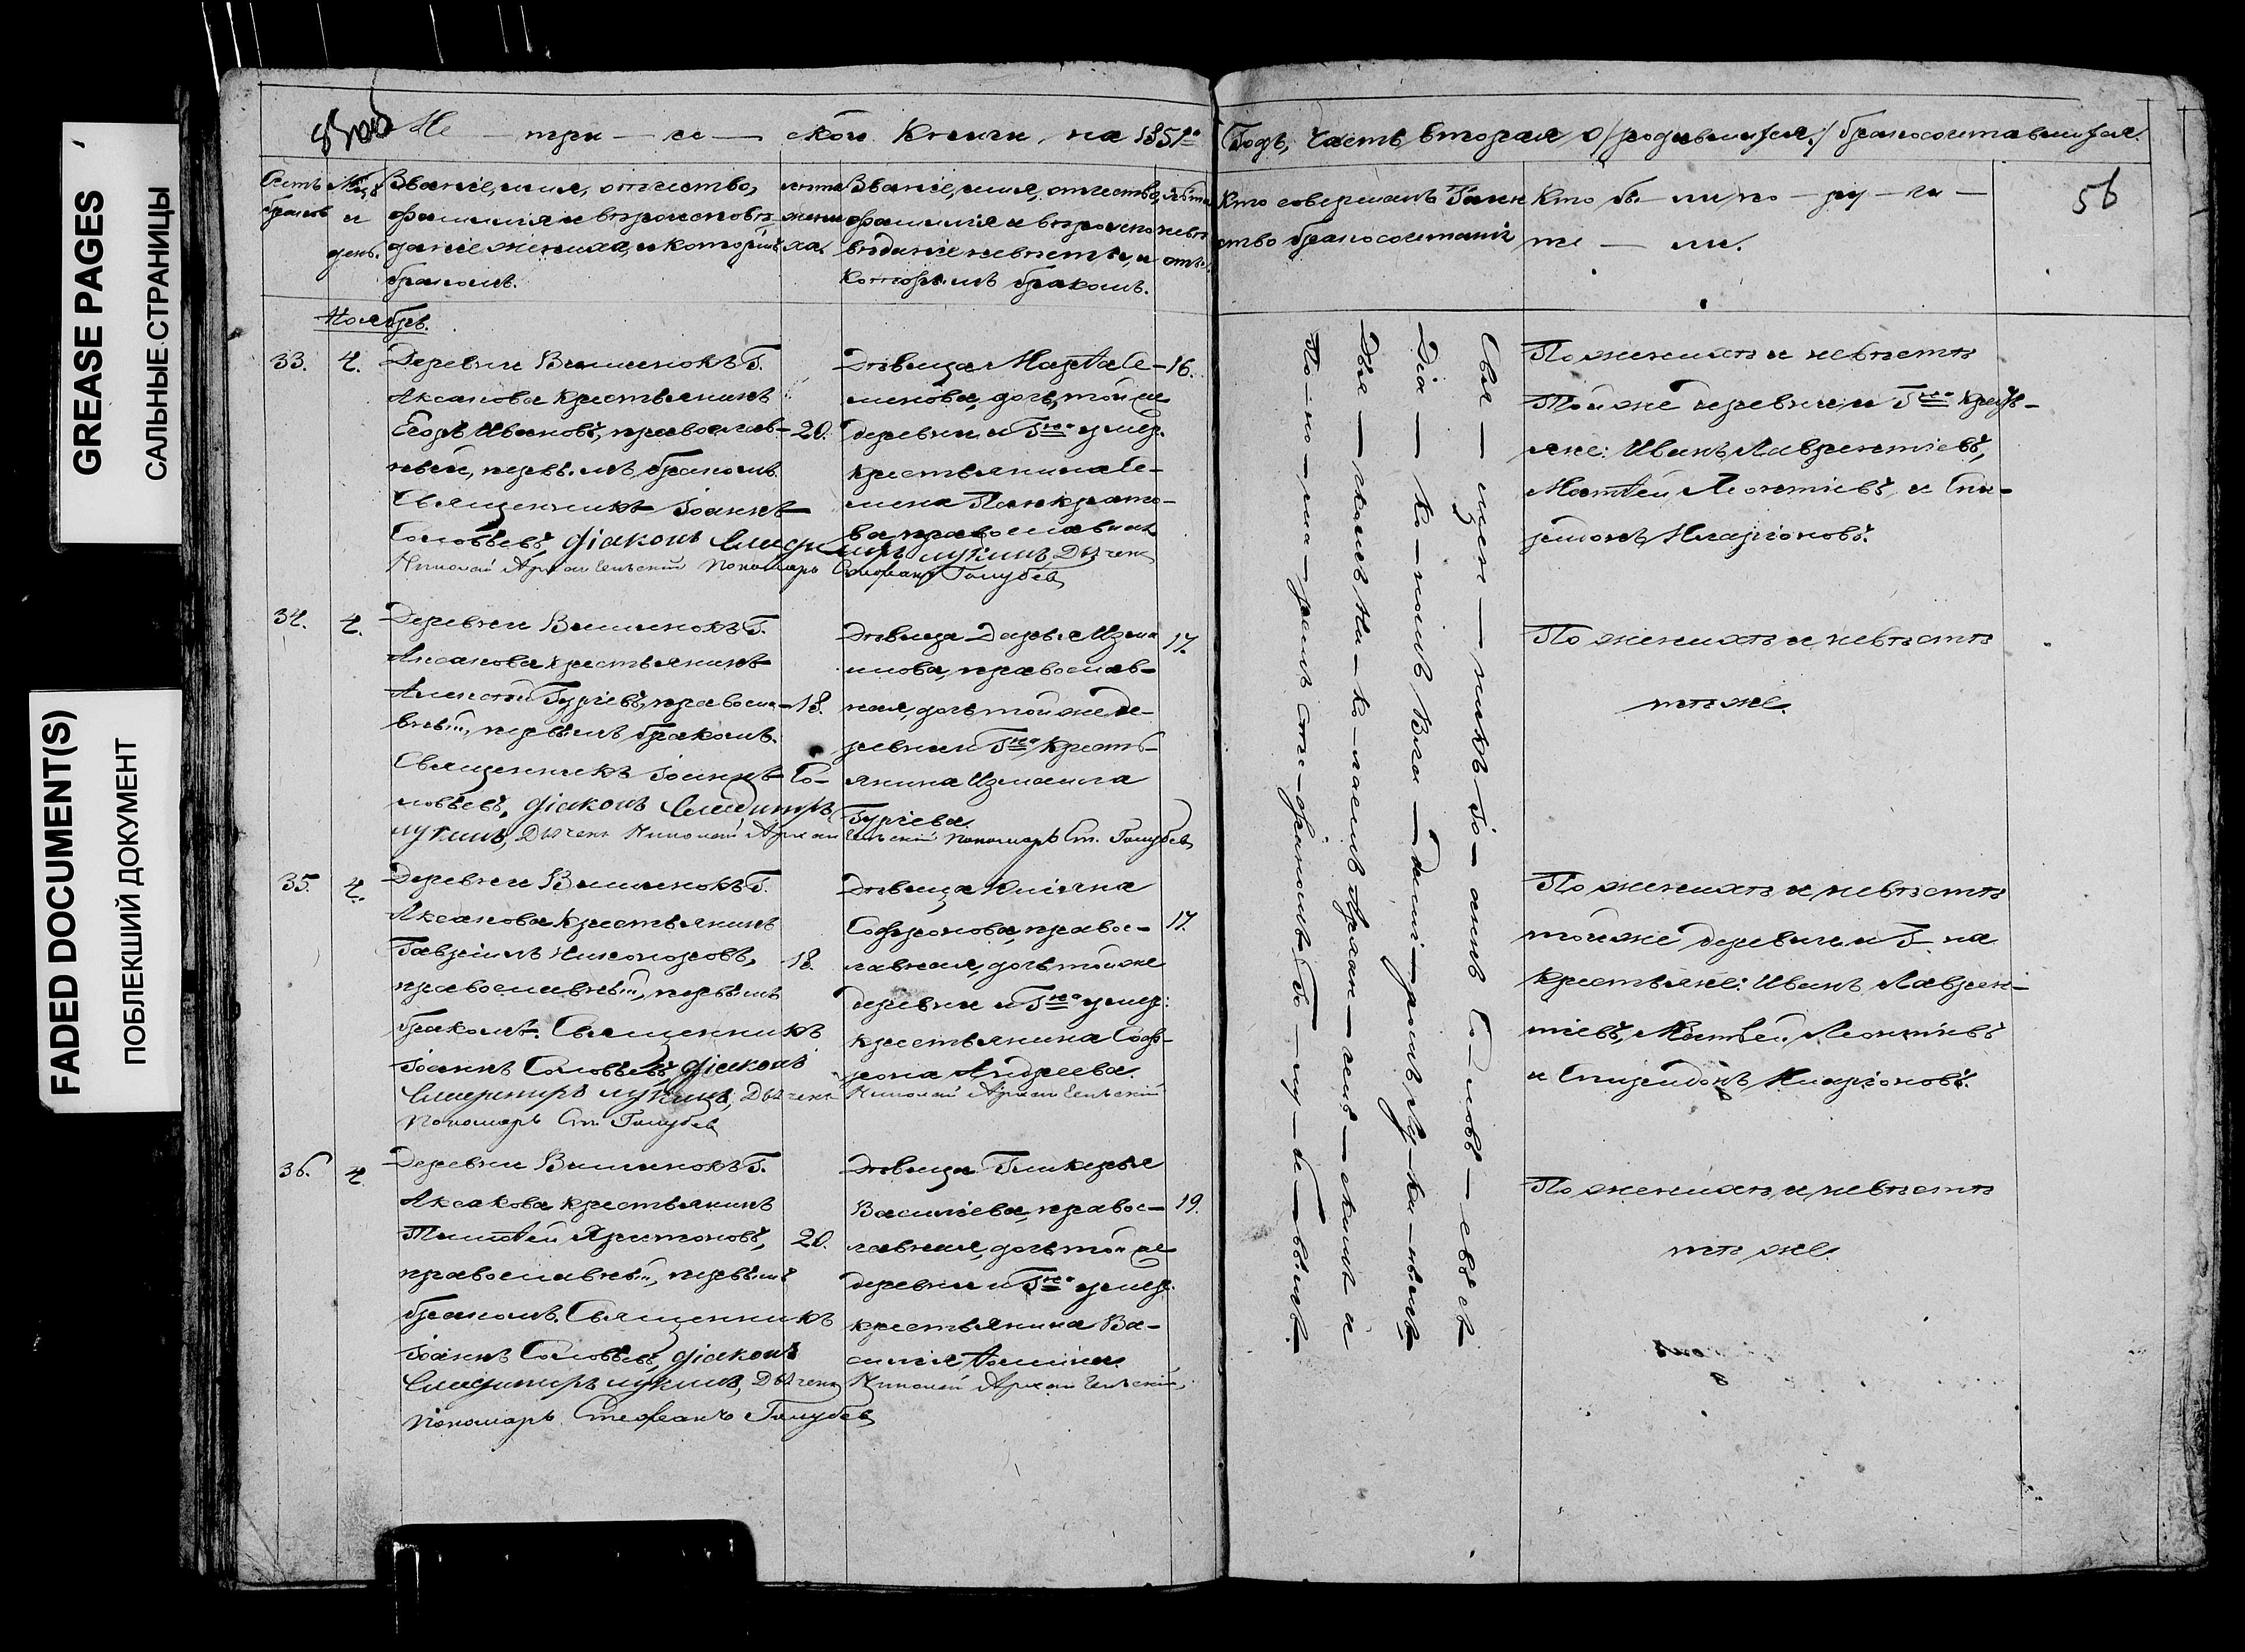 GREASE PAGES
САЛЬНЫЕ СТРАНИЦЫ
FADED DOCUMENT(S)
ПОБЛЕКШИЙ ДОКУМЕНТ
Ме — три — че — ской Книги, на 1851го
Годъ, Часть вторая о /родившихся:/ бракосочетавшихся.
56
Счетъ браковъ
Мцъ и день.
Званіе, имя, отчество,
фамилія и вѣроисповѣ-
даніе жениха, и которымъ
бракомъ.
лѣта жениха.
Званіе, имя, отчество,
фамилія и вѣроиспо-
вѣданіе невѣсты, и
которымъ бракомъ.
лѣта невѣсты.
Кто совершалъ Таин-
ство бракосочетанія
Кто бы — ли по — ру — чи —
те — ли.
Ноябрь.
33.
4.
Деревни Вишенокъ Г.
Аксакова крестьянинъ
Егоръ Ивановъ, православ-
ный, первымъ бракомъ.
Священникъ Іоаннъ
Соловьевъ, діаконъ Владимиръ Лукинъ, Дьячекъ
Николай Архангельский Пономарь Стефанъ Голубевъ
20.
Дѣвица Марѳа Се-
менова, дочь той же
деревни и Гна умер.
крестьянина Се-
мена Панкрато-
ва, православная
16.
По женихѣ и невѣстѣ
Той же деревни и Гна кресть-
яне: Иванъ Лаврентіевъ,
Матѳей Леонтіевъ, и Спи-
ридонъ Иларіоновъ.
34.
4.
Деревни Вишенокъ Г.
Аксакова крестьянинъ
Алексѣй Гурьевъ, правосла-
вный, первымъ бракомъ.
Священникъ Іоаннъ Со-
ловьевъ, діаконъ Владимиръ
Лукинъ, Дьячекъ Николай Архангельский Пономарь Ст. Голубевъ
18.
Дѣвица Дарья Изма-
илова, православ-
ная, дочь той же де-
ревни и Гна кресть-
янина Измаила
Гурьева.
17.
По женихѣ и невѣстѣ
тѣ же.
35.
4.
Деревни Вишенокъ Г.
Аксакова крестьянинъ
Гавріилъ Никоноровъ,
православный, первымъ
бракомъ. Священникъ
Іоаннъ Соловьевъ, діаконъ
Владимиръ Лукинъ, Дьячекъ Николай Архангельский
Пономарь Ст. Голубевъ
18.
Дѣвица Юліана
Софронова, правос-
лавная, дочь той же
деревни и Гна умер:
крестьянина Соф-
рона Андреева.
17.
По женихѣ и невѣстѣ
той же деревни и Г-на
крестьяне: Иванъ Лаврен-
тіевъ, Матѳей Леонтіевъ
и Спиридонъ Иларіоновъ.
36.
4.
Деревни Вишенокъ Г.
Аксакова крестьянинъ
Тимоѳей Харитоновъ,
православный, первымъ
бракомъ. Священникъ
Іоаннъ Соловьевъ, діаконъ
Владимиръ Лукинъ, Дьячекъ Николай Архангельский,
Пономарь Стефанъ Голубевъ
20.
Дѣвица Гликерья
Васильева, правос-
лавная, дочь той же
деревни и Гна умер.
крестьянина Ва-
силія Ѳомина.
19.
По женихѣ и невѣстѣ
тѣ же.
Свя — щен — никъ Іо — аннъ Со — ловь — евъ съ
Діа — ко — номъ Вла — дими — ромъ Лу — ки — нымъ
Дья — комъ Ни — ко — лаемъ Архан — гель — скимъ и
По — но — ма — ремъ Сте — фаномъ Го — лу — бе — вымъ.